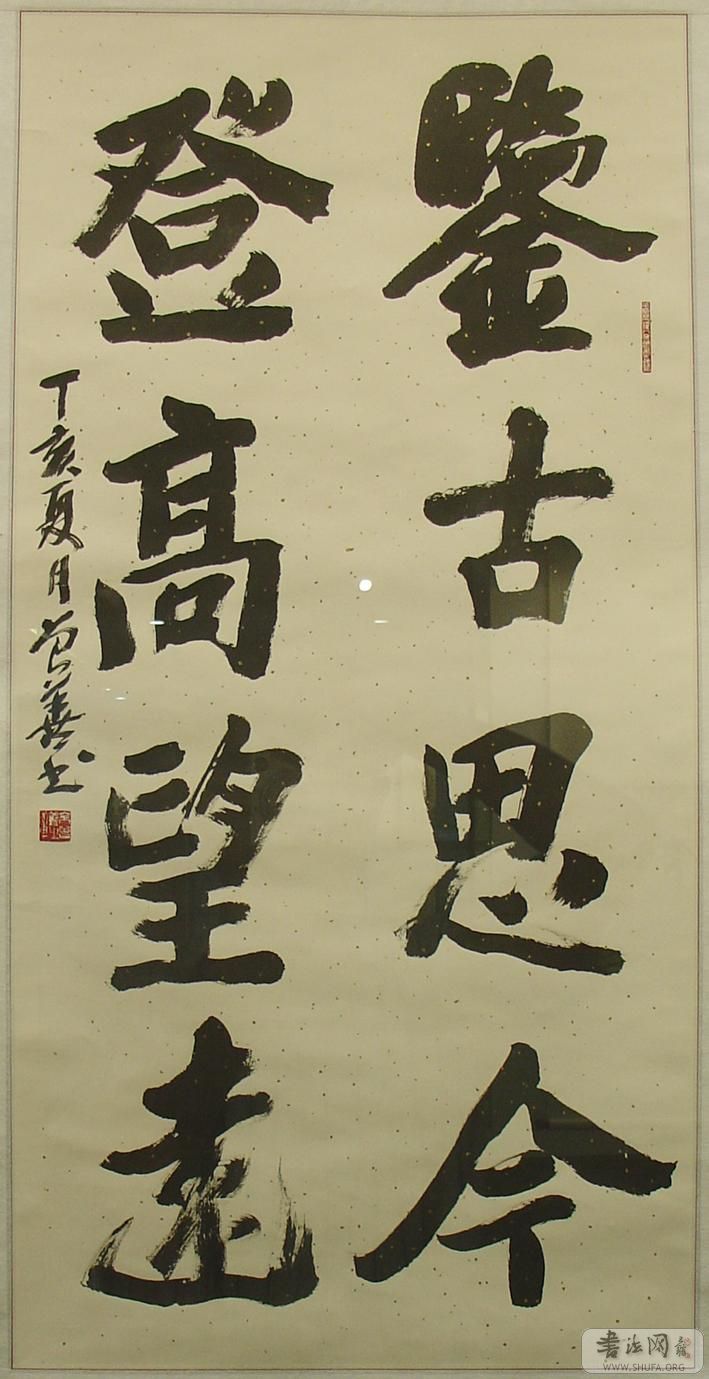 鑒古思今
登高望遠
丁亥夏月
書法网
WWW.SHUFA.ORG